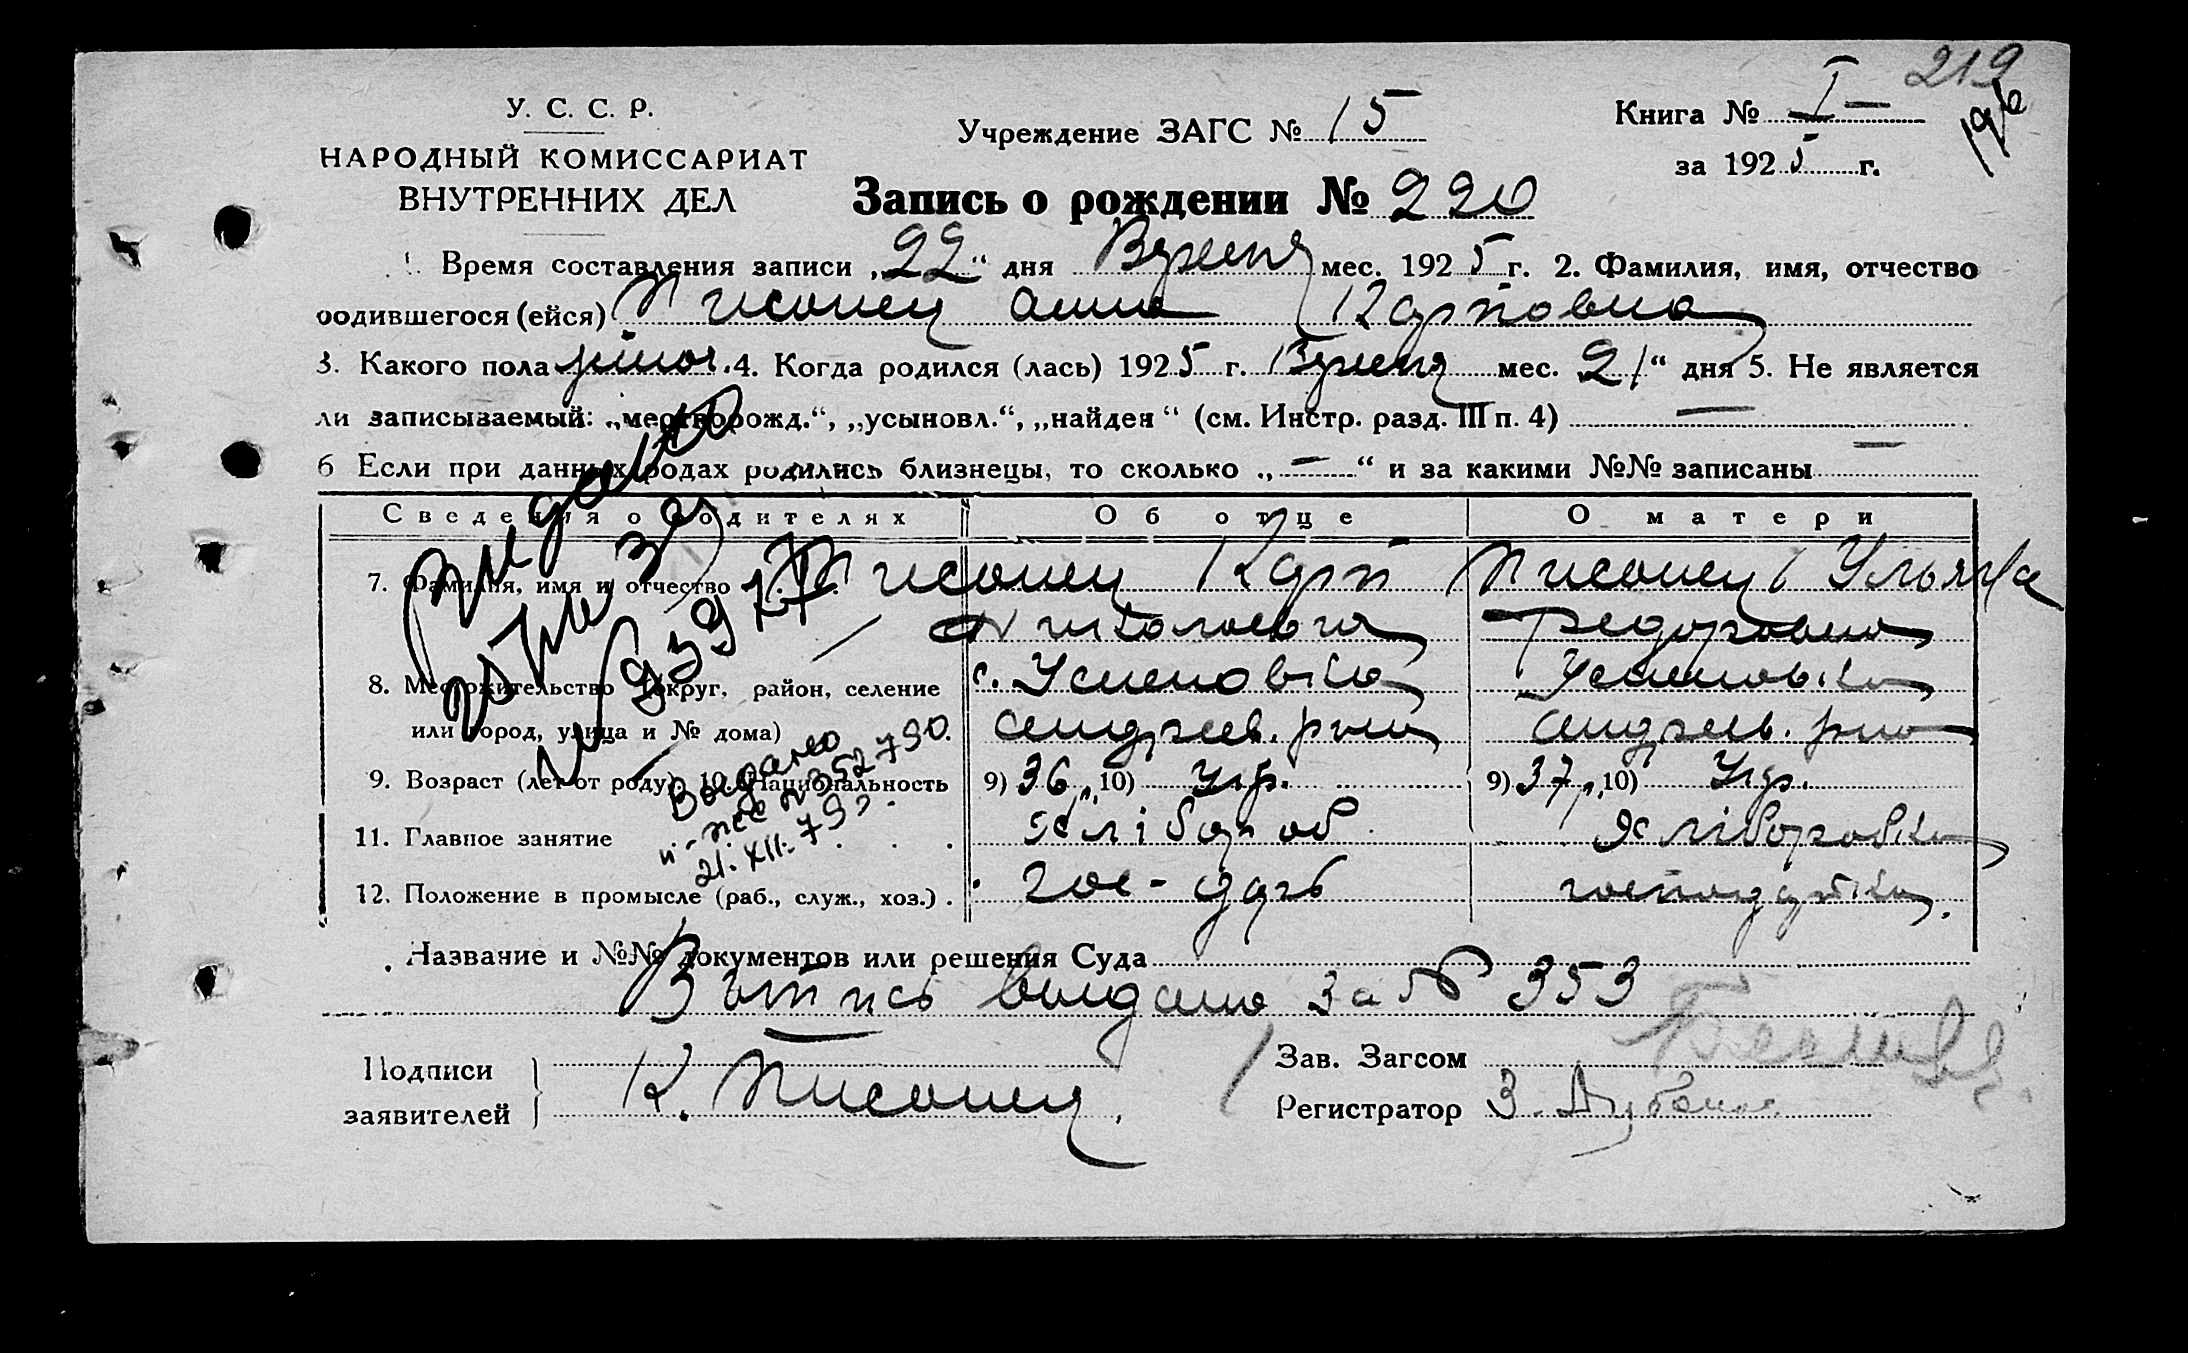 219
196
У. С. С. Р.
НАРОДНЫЙ КОМИССАРИАТ
ВНУТРЕННИХ ДЕЛ
Учреждение ЗАГС № 15
Книга № I
за 1925 г.
Запись о рождении № 220
1. Время составления записи „22“ дня мес. 1925 г. 2. Фамилия, имя, отчество
родившегося (ейся) Писанец Анна Карповна
3. Какого пола жіноч. 4. Когда родился (лась) 1925 г. мес. 21“ дня 5. Не является
ли записываемый: „мертворожд.“, „усыновл.“, „найден“ (см. Инстр. разд. III п. 4) —
6 Если при данных родах родились близнецы, то сколько „—“ и за какими №№ записаны —
Сведения о родителях Об отце О матери
7. Фамилия, имя и отчество Писанец Карп Писанец Ульяна
Николаевич Федоровна
8. Местожительство (округ, район, селение с. Успеновка Успеновка
или город, улица и № дома) Андреев. р-на Андреев. р-на
9. Возраст (лет от роду) 10. Национальность 9) 36 10) Укр. 9) 37 10) Укр.
11. Главное занятие Хлібороб Хліборобка
12. Положение в промысле (раб., служ., хоз.) . гос-дарь
Видано
Выдано
352790
21. XII.
Название и №№ документов или решения Суда
Выпись выдана за № 353
Подписи
заявителей
К. Писанец
Зав. Загсом
Регистратор З.